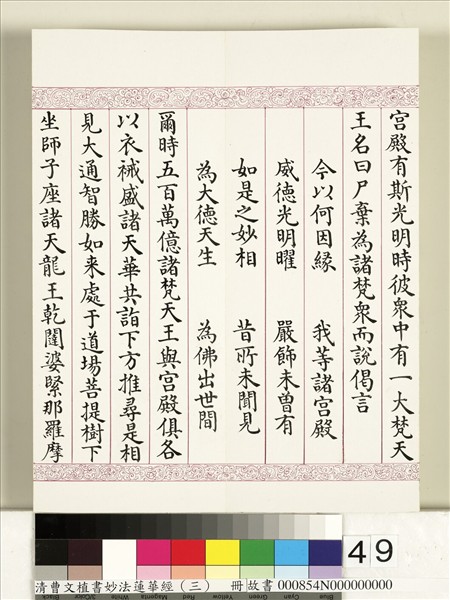 宮殿有斯光明時彼衆中有一大梵天
王名曰尸棄為諸梵衆而說偈言
今以何因緣 我等諸宮殿
威德光明曜 嚴飾未曾有
如是之妙相 昔所未聞見
為大德天生 為佛出世間
爾時五百萬億諸梵天王與宮殿俱各
以衣裓盛諸天華共詣下方推尋是相
見大通智勝如来處于道場菩提樹下
坐師子座諸天龍王乾闥婆緊那羅摩
49
清曹文植書妙法蓮華經（三） 冊 故書 000854N000000000
Blue Cyan Green Yellow Red Magenta White 3/Color Black